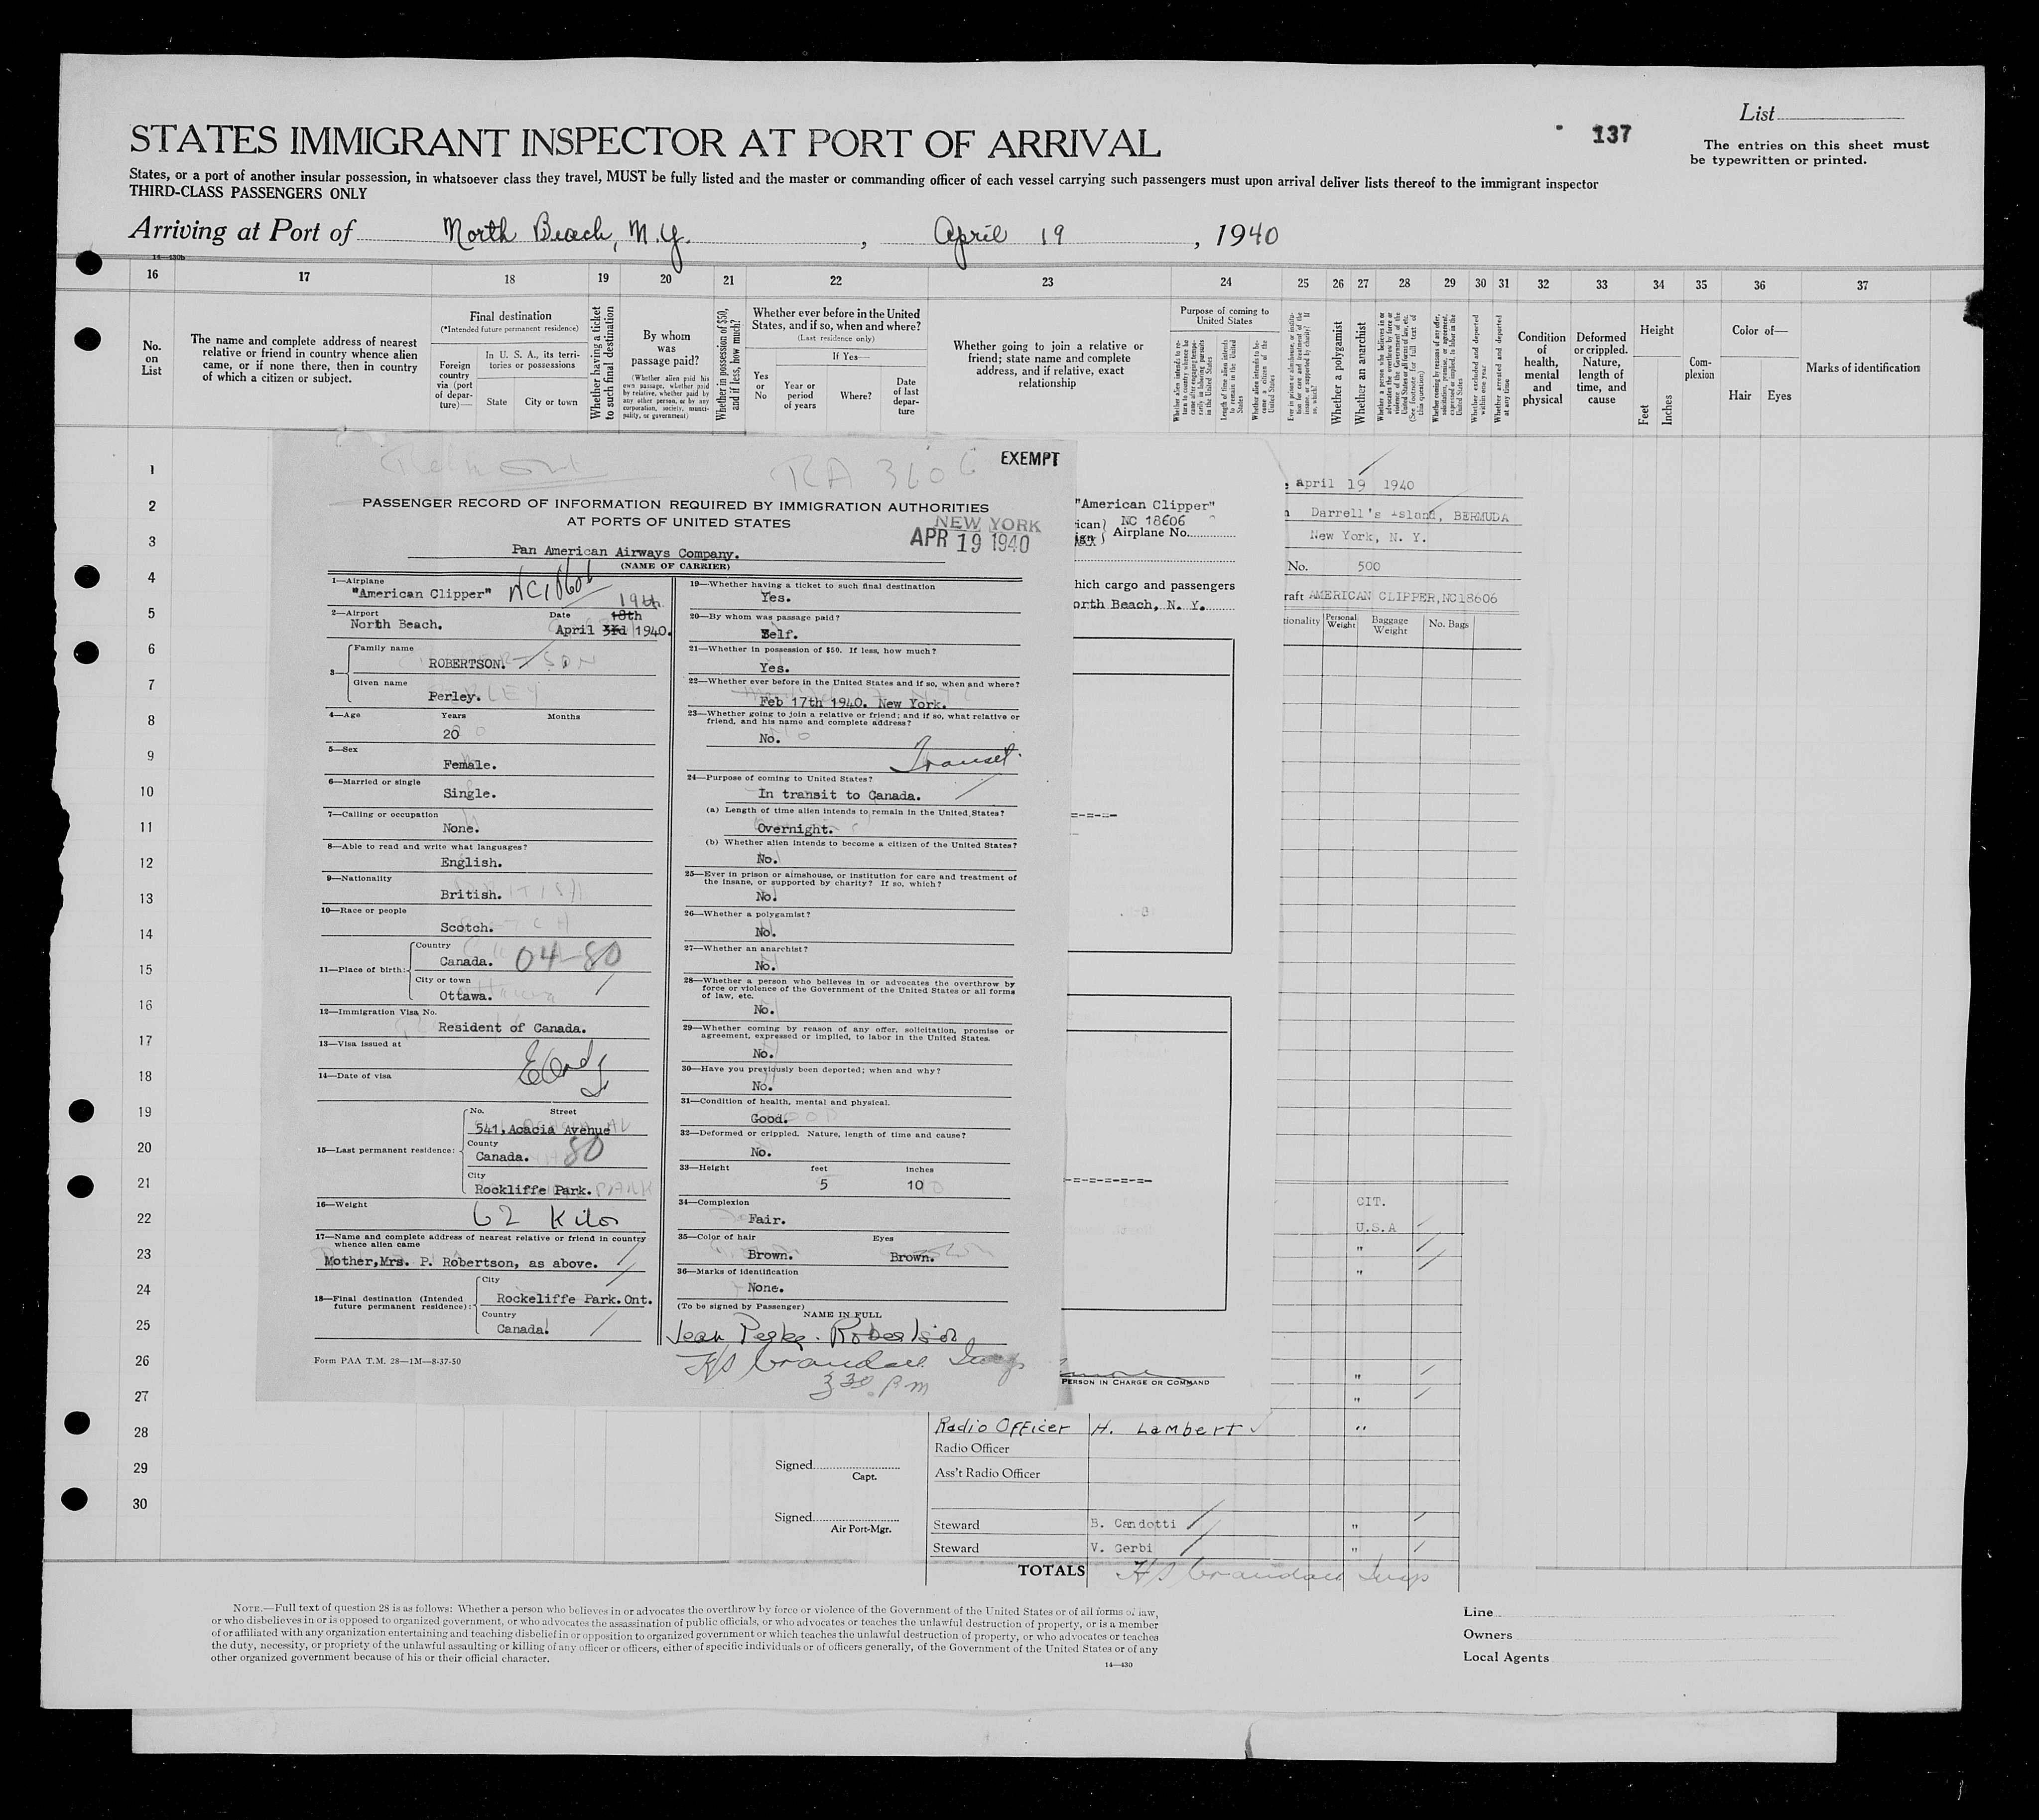 List
137
The entries on this sheet must
be typewritten or printed.
STATES IMMIGRANT INSPECTOR AT PORT OF ARRIVAL
States, or a port of another insular possession, in whatsoever class they travel, MUST be fully listed and the master or commanding officer of each vessel carrying such passengers must upon arrival deliver lists thereof to the immigrant inspector
THIRD-CLASS PASSENGERS ONLY
Arriving at Port of North Beach, N.Y. , April 19 , 1940
14—430b
16 17 18 19 20 21 22 23 24 25 26 27 28 29 30 31 32 33 34 35 36 37
No. on List
The name and complete address of nearest relative or friend in country whence alien came, or if none there, then in country of which a citizen or subject.
Final destination
(*Intended future permanent residence)
Foreign country via (port of departure)—
In U. S. A., its territories or possessions
State
City or town
Whether having a ticket to such final destination
By whom was passage paid?
(Whether alien paid his own passage, whether paid by relative, whether paid by any other person, or by any corporation, society, municipality, or government)
Whether in possession of $50, and if less, how much?
Whether ever before in the United States, and if so, when and where?
(Last residence only)
Yes or No
If Yes—
Year or period of years
Where?
Date of last departure
Whether going to join a relative or friend; state name and complete address, and if relative, exact relationship
Purpose of coming to United States
Whether a polygamist
Whether an anarchist
Whether excluded and deported within one year
Whether arrested and deported at any time
Condition of health, mental and physical
Deformed or crippled. Nature, length of time, and cause
Height
Feet
Inches
Complexion
Color of—
Hair
Eyes
Marks of identification
1
2
3
4
5
6
7
8
9
10
11
12
13
14
15
16
17
18
19
20
21
22
23
24
25
26
27
28
29
30
RA 3606
EXEMPT
PASSENGER RECORD OF INFORMATION REQUIRED BY IMMIGRATION AUTHORITIES
AT PORTS OF UNITED STATES
NEW YORK
APR 19 1940
Pan American Airways Company.
(NAME OF CARRIER)
1—Airplane
"American Clipper" NC18606
2—Airport Date 19th
North Beach. 18th
April 3rd 1940.
3— Family name
ROBERTSON.
Given name
Perley.
4—Age Years Months
20
5—Sex
Female.
6—Married or single
Single.
7—Calling or occupation
None.
8—Able to read and write what languages?
English.
9—Nationality
British.
10—Race or people
Scotch.
11—Place of birth: Country
Canada. 04-80
City or town
Ottawa.
12—Immigration Visa No.
Resident of Canada.
13—Visa issued at
14—Date of visa
15—Last permanent residence: No. Street
541, Acacia Avenue
County
Canada. 80
City
Rockliffe Park.
16—Weight
62 Kilos
17—Name and complete address of nearest relative or friend in country
whence alien came
Mother,Mrs. P. Robertson, as above.
18—Final destination (Intended
future permanent residence): City
Rockeliffe Park.Ont.
Country
Canada.
Form PAA T.M. 28—1M—8-37-50
19—Whether having a ticket to such final destination
Yes.
20—By whom was passage paid?
Self.
21—Whether in possession of $50. If less, how much?
Yes.
22—Whether ever before in the United States and if so, when and where?
Feb 17th 1940. New York.
23—Whether going to join a relative or friend; and if so, what relative or
friend, and his name and complete address?
No.
Transit
24—Purpose of coming to United States?
In transit to Canada.
(a) Length of time alien intends to remain in the United States?
Overnight.
(b) Whether alien intends to become a citizen of the United States?
No.
25—Ever in prison or almshouse, or institution for care and treatment of
the insane, or supported by charity? If so, which?
No.
26—Whether a polygamist?
No.
27—Whether an anarchist?
No.
28—Whether a person who believes in or advocates the overthrow by
force or violence of the Government of the United States or all forms
of law, etc.
No.
29—Whether coming by reason of any offer, solicitation, promise or
agreement, expressed or implied, to labor in the United States.
No.
30—Have you previously been deported; when and why?
No.
31—Condition of health, mental and physical.
Good.
32—Deformed or crippled. Nature, length of time and cause?
No.
33—Height feet inches
5 10
34—Complexion
Fair.
35—Color of hair Eyes
Brown. Brown.
36—Marks of identification
None.
(To be signed by Passenger)
NAME IN FULL
Jean Perley-Robertson
H/S Crandall Insp
3 30 PM
"American Clipper"
NC 18606
Airplane No.
hich cargo and passengers
orth Beach, N. Y.
PERSON IN CHARGE OR COMMAND
april 19 1940
Darrell's Island, BERMUDA
New York, N. Y.
No. 500
raft AMERICAN CLIPPER,NC18606
tionality Personal Weight Baggage Weight No. Bags
CIT.
U.S.A
"
"
"
"
Radio Officer H. Lambert "
Radio Officer
Ass't Radio Officer
Steward B. Candotti "
Steward V. Gerbi "
TOTALS H/S Crandall Insp
Signed
Capt.
Signed
Air Port-Mgr.
NOTE.—Full text of question 28 is as follows: Whether a person who believes in or advocates the overthrow by force or violence of the Government of the United States or of all forms of law,
or who disbelieves in or is opposed to organized government, or who advocates the assassination of public officials, or who advocates or teaches the unlawful destruction of property, or is a member
of or affiliated with any organization entertaining and teaching disbelief in or opposition to organized government or which teaches the unlawful destruction of property, or who advocates or teaches
the duty, necessity, or propriety of the unlawful assaulting or killing of any officer or officers, either of specific individuals or of officers generally, of the Government of the United States or of any
other organized government because of his or their official character.
14—430
Line
Owners
Local Agents